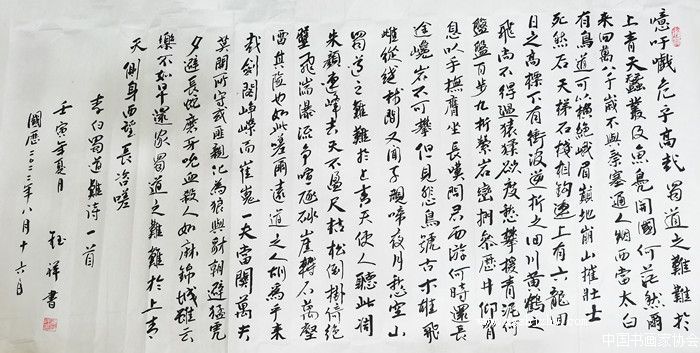 噫吁嚱危乎高哉蜀道之難難於
上青天蠶叢及魚鳧開國何茫然爾
来四萬八千歲不與秦塞通人烟西當太白
有鳥道可以橫絶峨眉巔地崩山摧壯士
死然后天梯石棧相鈎連上有六龍回
日之高標下有衝波逆折之回川黄鶴之
飛尚不得過猿猱欲度愁攀援青泥何
盤盤百步九折縈岩巒捫參歷井仰脅
息以手撫膺坐長嘆問君西游何時還畏
途巉岩不可攀但見悲鳥號古木雄飛
雌從繞林間又聞子規啼夜月愁空山
蜀道之難難於上青天使人聽此凋
朱顔連峰去天不盈尺枯松倒掛倚絶
壁飛湍瀑流争喧豗砯崖轉石萬壑
雷其險也如此嗟爾遠道之人胡為乎来
哉劍閣崢嶸而崔嵬一夫當關萬夫
莫開所守或匪親化為狼與豺朝避猛虎
夕避長蛇磨牙吮血殺人如麻錦城雖云
樂不如早還家蜀道之難難於上青
天側身西望長咨嗟
李白蜀道難詩一首
壬寅年夏月
鈺祥書
國歷二〇二二年八月十六日
中国书画家协会